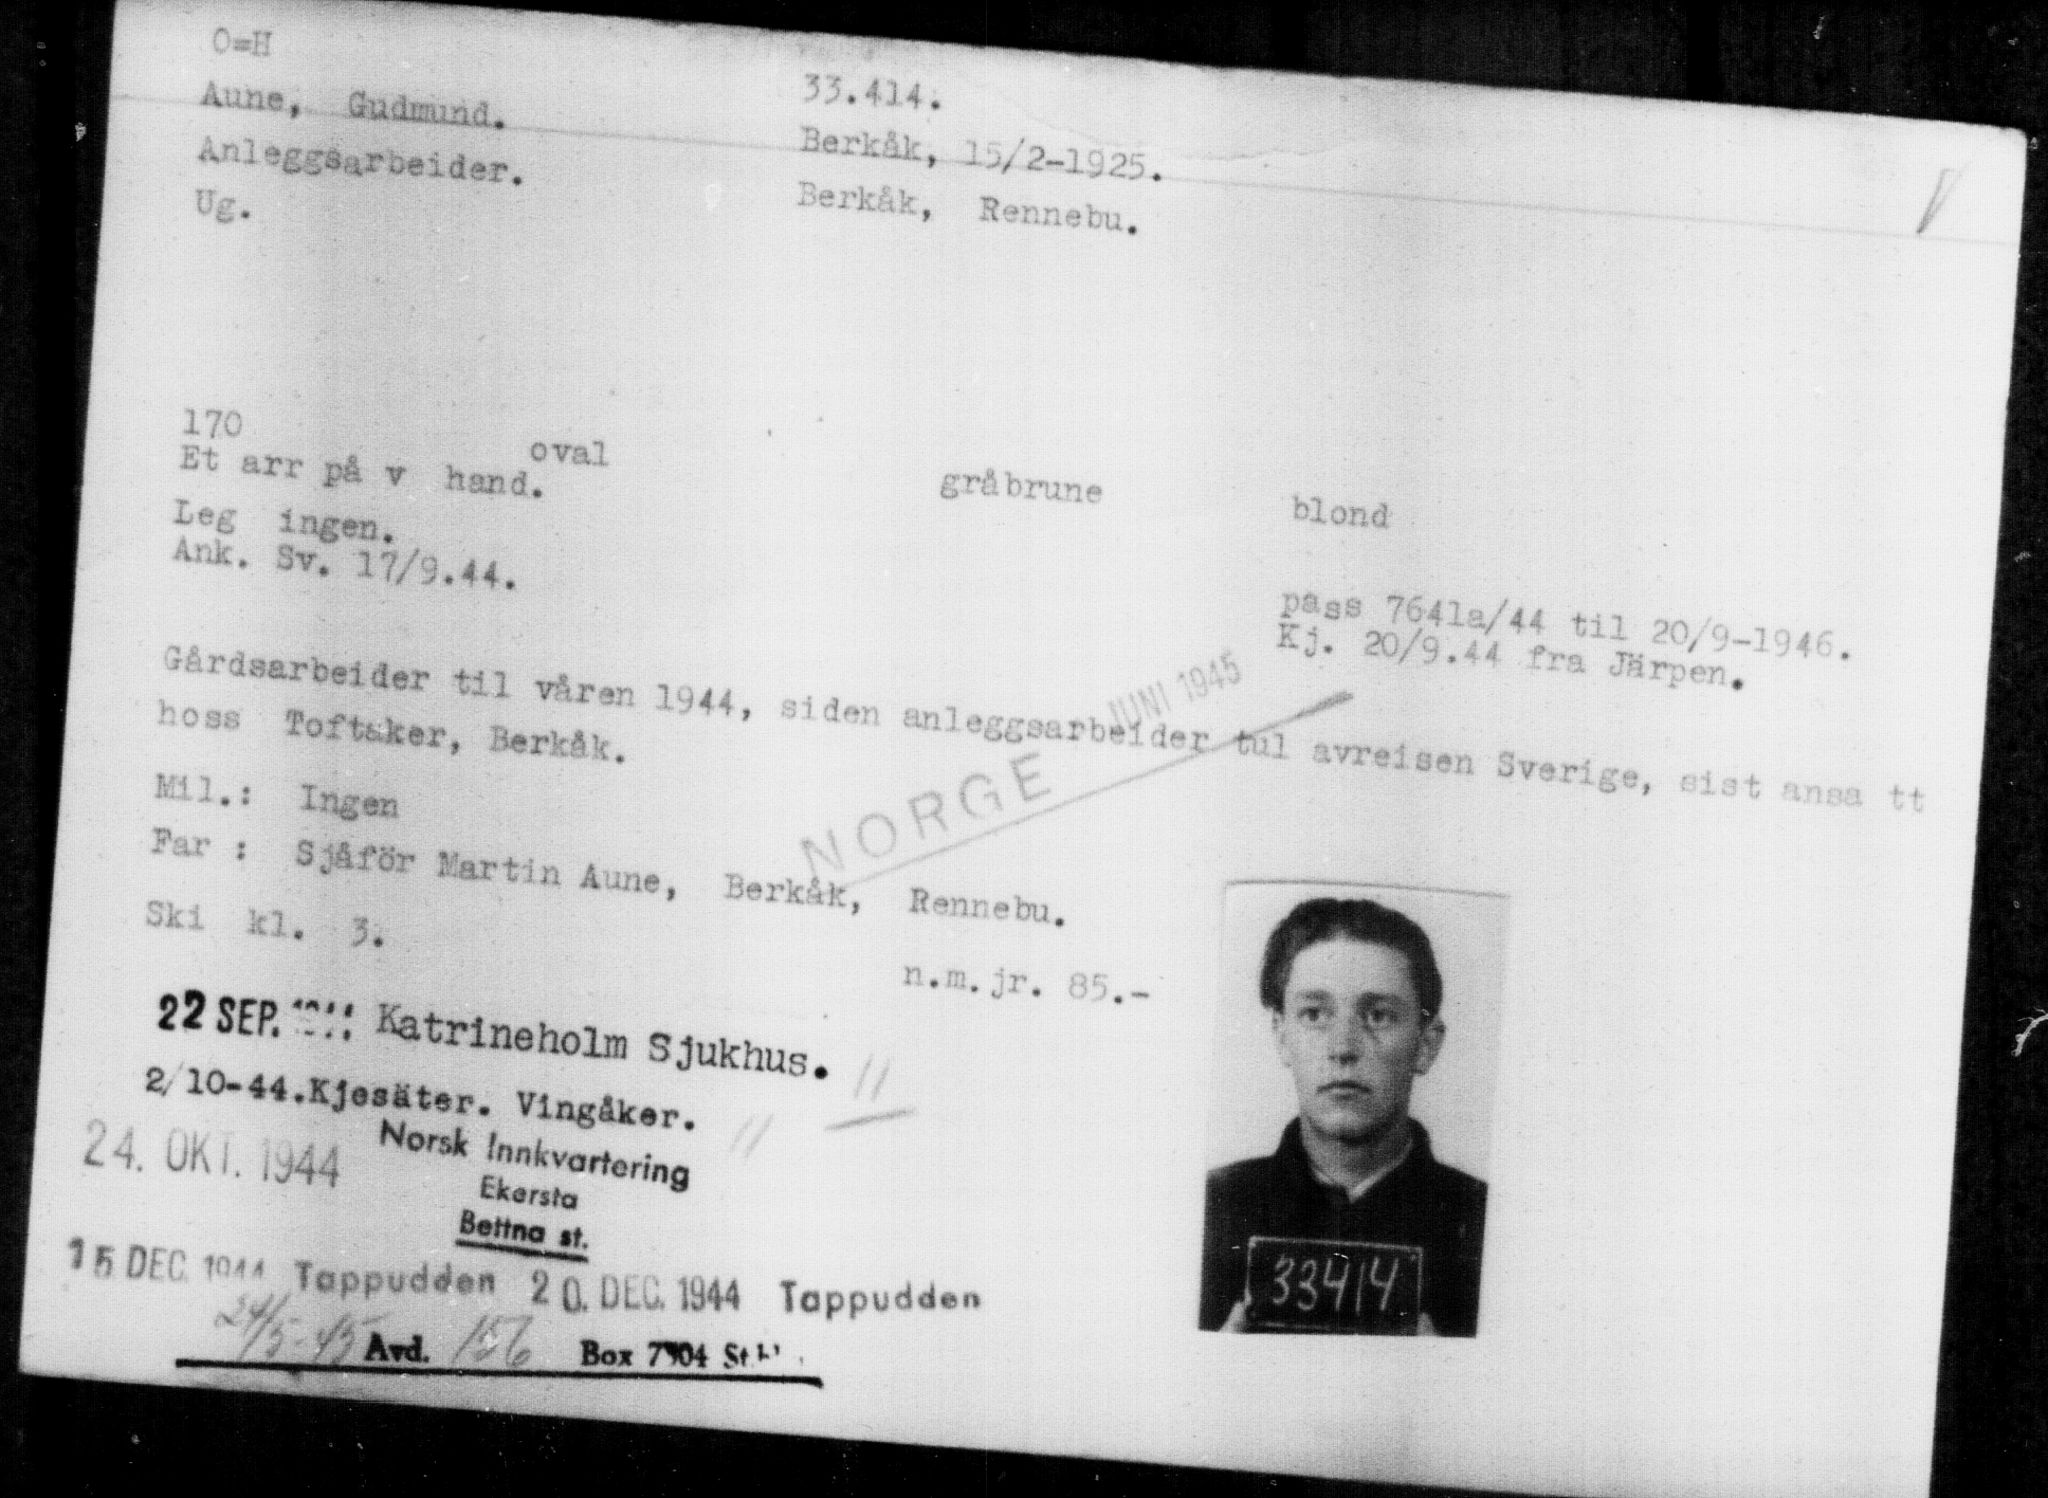 O=H
Aune, Gudmund. 33.414.
Anleggsarbeider. Berkåk, 15/2-1925.
Ug. Berkåk, Rennebu.
170 oval gråbrune blond
Et arr på v hand.
Leg ingen.
Ank. Sv. 17/9.44.
pass 7641a/44 til 20/9-1946.
Kj. 20/9.44 fra Järpen.
Gårdsarbeider til våren 1944, siden anleggsarbeider tul avreisen Sverige, sist ansa tt
hoss Toftaker, Berkåk.
JUNI 1945
NORGE
Mil.: Ingen
Far : Sjåför Martin Aune, Berkåk, Rennebu.
Ski kl. 3.
n.m.jr. 85.-
22 SEP. Katrineholm Sjukhus. "
2/10-44. Kjesäter. Vingåker. "
24. OKT. 1944 Norsk Innkvartering
Ekersta
Bettna st.
15 DEC. 1944 Tappudden 20. DEC. 1944 Tappudden
24/5-45 Avd. 156 Box 7904
33414